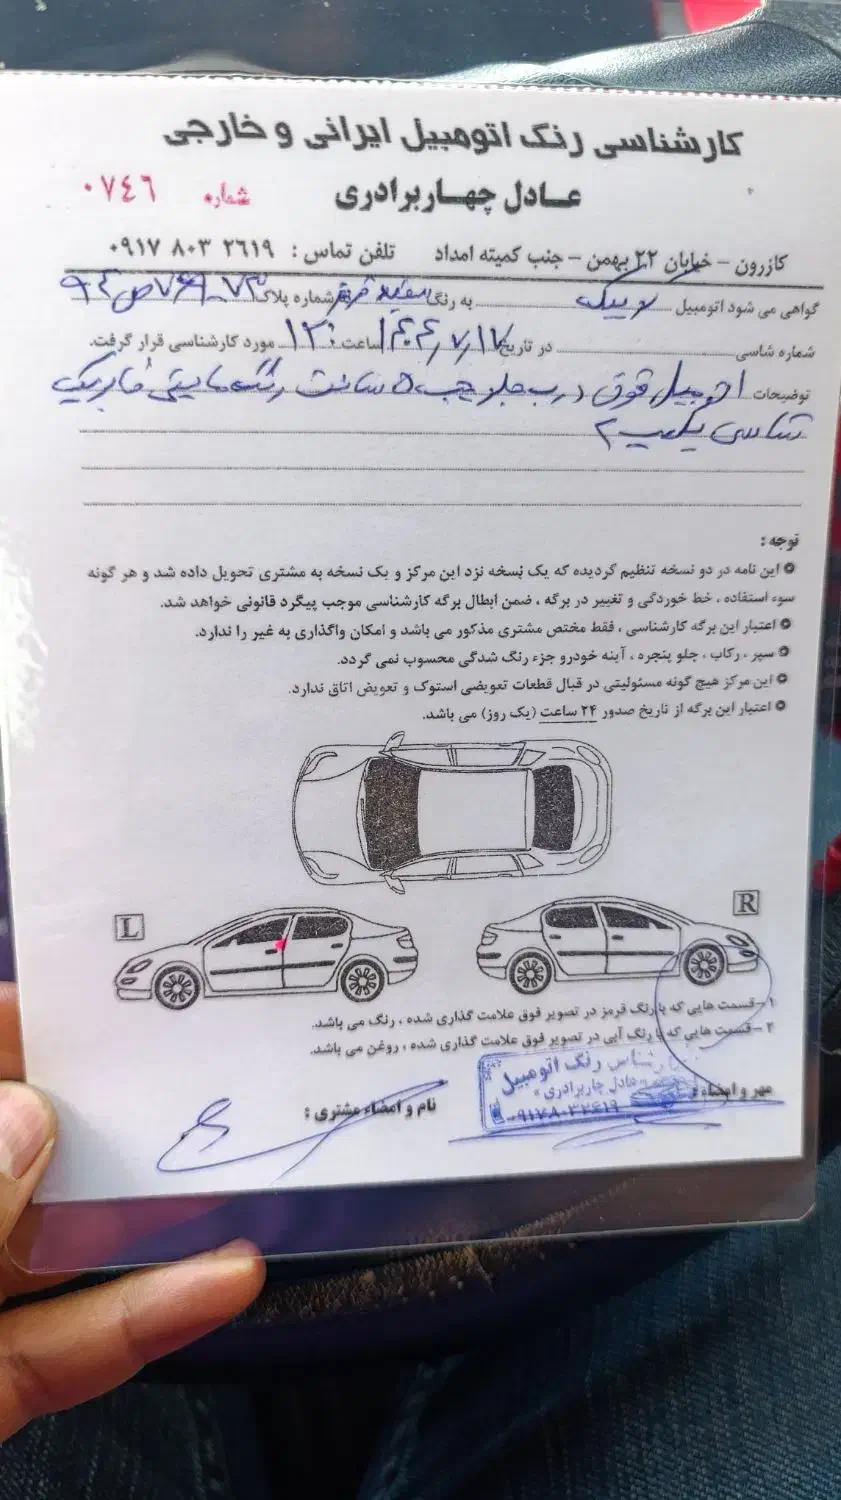 کارشناسی رنگ اتومبیل ایرانی و خارجی
عادل چهاربرادری
شماره ۰۷۴۶
کازرون – خیابان ۲۲ بهمن – جنب کمیته امداد تلفن تماس : ۰۹۱۷ ۸۰۳ ۲۶۱۹
گواهی می شود اتومبیل کوییک به رنگ سفید شماره پلاک
شماره شاسی در تاریخ ۱۴۰۴/۷/۱۷ ساعت ۱۳:۰ مورد کارشناسی قرار گرفت.
توضیحات اتومبیل فوق درب جلو چپ ۵ سانت رنگ مابقی فابریک
توجه :
این نامه در دو نسخه تنظیم گردیده که یک نسخه نزد این مرکز و یک نسخه به مشتری تحویل داده شد و هر گونه
سوء استفاده ، خط خوردگی و تغییر در برگه ، ضمن ابطال برگه کارشناسی موجب پیگرد قانونی خواهد شد.
اعتبار این برگه کارشناسی ، فقط مختص مشتری مذکور می باشد و امکان واگذاری به غیر را ندارد.
سپر ، رکاب ، جلو پنجره ، آینه خودرو جزء رنگ شدگی محسوب نمی گردد.
این مرکز هیچ گونه مسئولیتی در قبال قطعات تعویضی استوک و تعویض اتاق ندارد.
اعتبار این برگه از تاریخ صدور ۲۴ ساعت (یک روز) می باشد.
R
L
۱ – قسمت هایی که با رنگ قرمز در تصویر فوق علامت گذاری شده ، رنگ می باشد.
۲ – قسمت هایی که با رنگ آبی در تصویر فوق علامت گذاری شده ، روغن می باشد.
مهر و امضاء :
نام و امضاء مشتری :
کارشناس رنگ اتومبیل
عادل چاربرادری
۰۹۱۷۸۰۳۲۶۱۹